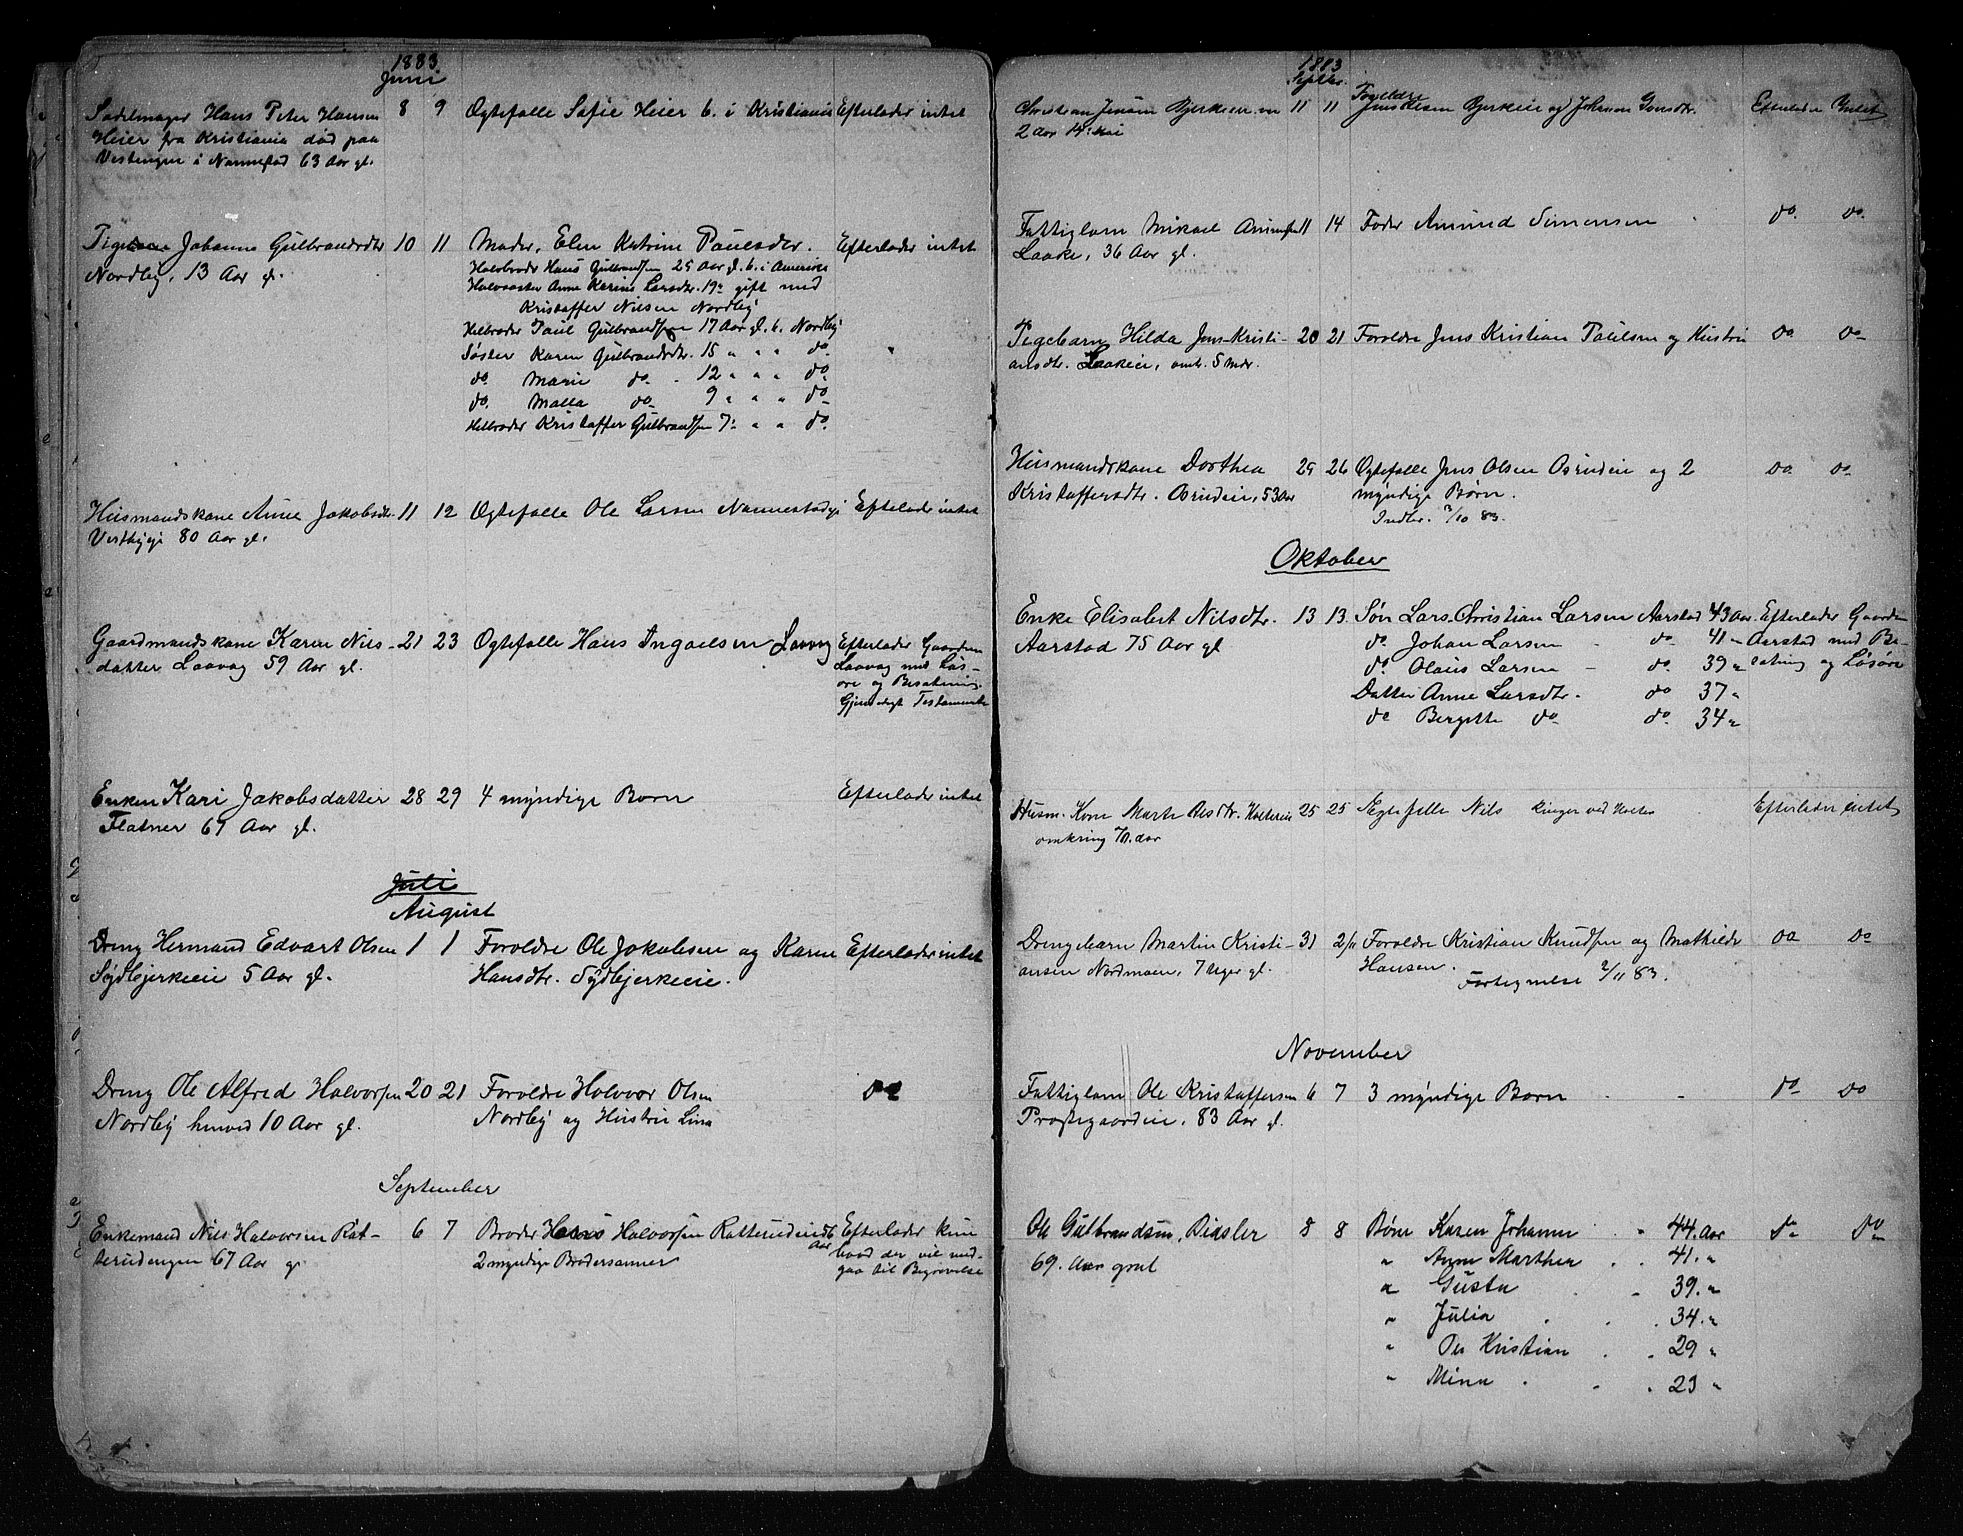 1883
Juni
Sadelmager Hans Peter Hansen 8 9 Ogtefalle Safie Heier b. i Kristiania Efterlader intet
Heier fra Kristiania død paa
i Nannestad 63 Aar gl.
Johanne Gulbrandsdtr 10 11 Moder, Elen Katrine Paulsdtr. Efterlader intet
Nordby, 13 Aar gl.
Halvbroder Hans Gulbrandsen 25 Aar gl. b. i Amerika
Halvsøster Anne Karine Larsdtr. 19 " gift med
Kristaffer Nilsen Nordby
Helbroder Paul Gulbrandsen 17 Aar gl. b. Nordby
Søster Karen Gulbrandsdtr. 15 " " " do.
do. Marie do. 12 " " " do.
do. Malla do. 9 " " " do.
Helbroder Kristaffer Gulbrandsen 7 " " " do.
Husmandskane Anne Jakobsdtr. 11 12 Ogtefalle Ole Larsen Efterlader intet
80 Aar gl.
Gaardmandskane Karen Nils- 21 23 Ogtefalle Hans Ingvelsen Laavag Efterlader Gaarden
datter Laavag 59 Aar gl.
Laavag med Løs-
øre og Besætning.
Gjensidigt Testamente
Enken Kari Jakobsdatter 28 29 4 myndige Born Efterlader intet
Flatner 67 Aar gl.
Juli
August
Dreng Hermand Edvart Olsen 1 1 Foreldre Ole Jakobsen og Karen Efterlader intet
Sydbjerkeeie 5 Aar gl. Hansdtr. Sydbjerkeeie.
Dreng Ole Alfred Halvorsen 20 21 Foreldre Halvor Olsen do
Nordby henved 10 Aar gl. Nordby og Hustru Lina
September
Enkemand Nils Halvorsen Rat- 6 7 Broder Hans Halvorsen Ratterudeie Efterlader kun
terudengen 67 Aar gl. 2 myndige Brodersønner hvad der vil med-
gaa til Begravelse
1883
Septbr.
Christian Jensen Bjerkeeie 11 11 Jens Olsen Bjerkeie og Johanne Efterlader Intet
2 Aar
Forældre
Fattiglem Mikael Amundsen 11 14 Fader Amund Simensen do. do.
Laake, 36 Aar gl.
Pigebarn Hilda Jens-Kristi- 20 21 Foreldre Jens Kristian Paulsen og Hustru do do
ansdtr. Laakeie, omtr. 5 Mdr.
Husmandskane Dorthea 25 26 Ogtefalle Jens Olsen Asrudeie og 2 do do
Kristaffersdtr. Asrudeie, 53 Aar myndige Børn.
Indbr. 3/10 83.
Oktober
Enke Elisabet Nilsdtr. 13 13. Søn Lars Christian Larsen Aarstad 43 Aar Efterlader Gaarden
Aarstad 75 Aar gl do. Johan Larsen do 41 " Aarstad med Be-
do. Olaus Larsen do 39 " sætning og Løsøre
Datter Anne Larsdtr. do 37 "
do Bergitte do do 34 "
Husm. Kone Marte 25 25 Ægtefelle Nils ved Holter Efterlader intet
omkring 70. aar
Drengebarn Martin Kristi- 31 2/11 Foreldre Kristian Knudsen og Mathilde do do
ansen Nordmoen, 7 Uger gl. Hansen. Fortegnelse 2/11 83.
November
Fattiglem Ole Kristaffersen 6 7 3 myndige Børn do do
Prestegaardeie. 83 Aar gl.
Ole Gulbrandsen, 8 8 Børn Karen Johanne 44. Aar do do
69. Aar gml " Anne Marthea 41. "
" Gusta 39. "
" Julia 34. "
" Ole Kristian 29 "
" Mina 23 "